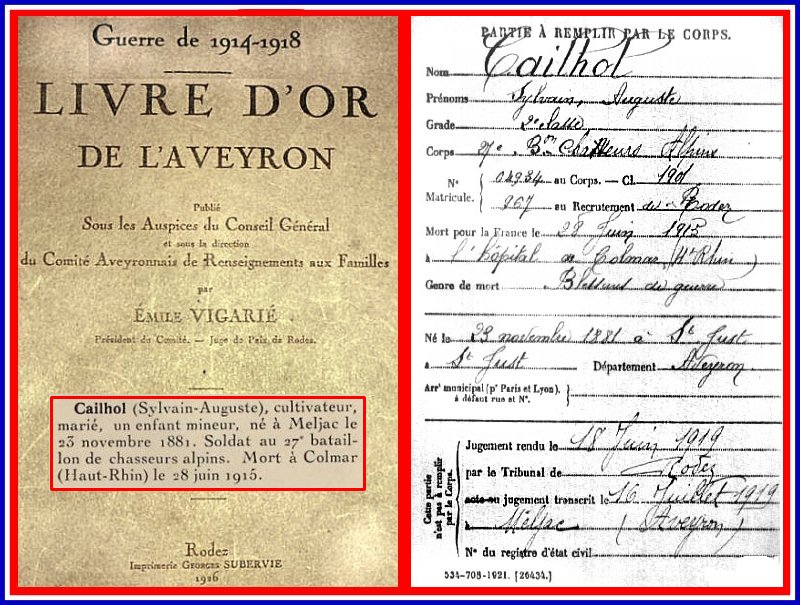 Guerre de 1914-1918
LIVRE D'OR
DE L'AVEYRON
Publié
Sous les Auspices du Conseil Général
et sous la direction
du Comité Aveyronnais de Renseignements aux Familles
par
ÉMILE VIGARIÉ
Président du Comité. — Juge de Paix de Rodez.
Cailhol (Sylvain-Auguste), cultivateur,
marié, un enfant mineur, né à Meljac le
23 novembre 1881. Soldat au 27e batail-
lon de chasseurs alpins. Mort à Colmar
(Haut-Rhin) le 28 juin 1915.
Rodez
Imprimerie GEORGES SUBERVIE
1926
PARTIE À REMPLIR PAR LE CORPS.
Nom Cailhol
Prénoms Sylvain, Auguste
Grade 2e classe
Corps 27e Bon Chasseurs Alpins
N° 04934 au Corps. — Cl. 1901
Matricule. 267 au Recrutement de Rodez
Mort pour la France le 28 Juin 1915
à l'hôpital de Colmar (Ht Rhin)
Genre de mort Blessures de guerre
Né le 23 novembre 1881 à St Just
à St Just Département Aveyron
Arrt municipal (pr Paris et Lyon),
à défaut rue et N°.
Cette partie
n'est pas à remplir
par le Corps.
Jugement rendu le 18 Juin 1919
par le Tribunal de Rodez
acte ou jugement transcrit le 16 Juillet 1919
à Meljac (Aveyron)
N° du registre d'état civil
534-708-1921. [26434.]